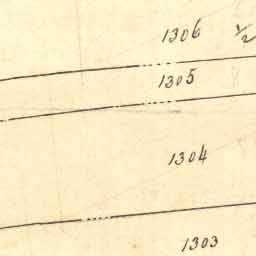 1306 1/2
1305
1304
1303